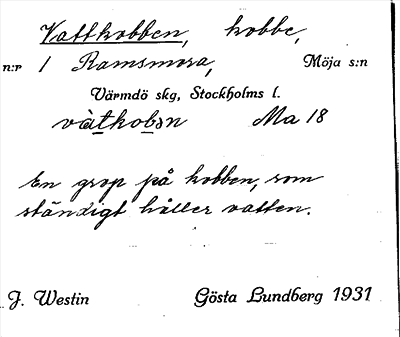 Vattkobben, kobbe,
n:r 1 Ramsmora, Möja s:n
Värmdö skg, Stockholms l.
vàtkobən Ma 18
En grop på kobben, som
ständigt håller vatten.
J. Westin Gösta Lundberg 1931